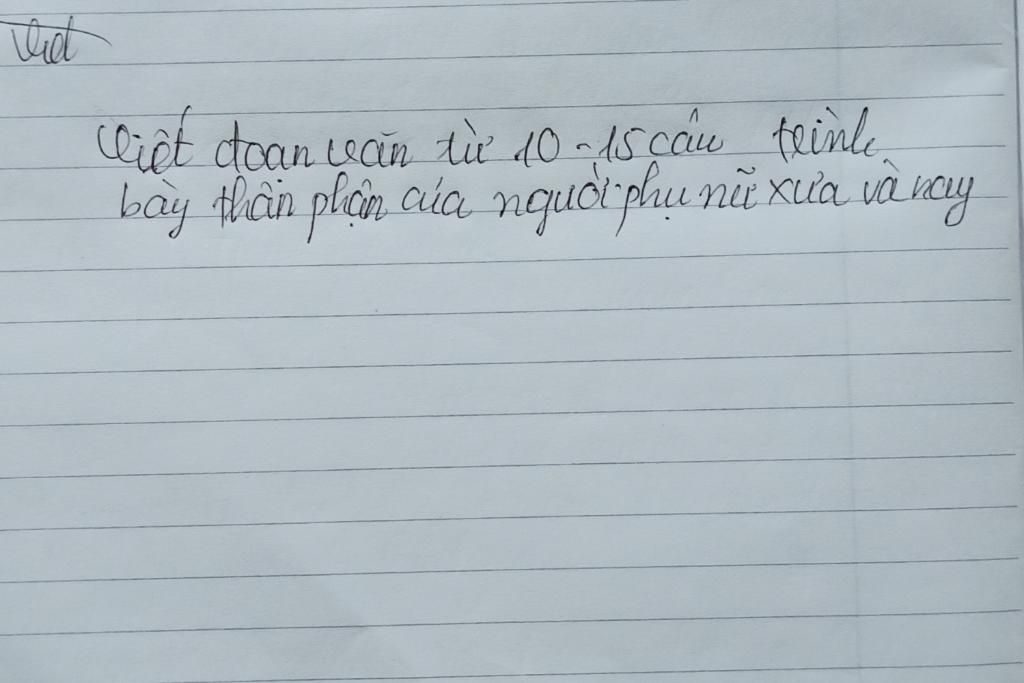 Viết
Viết đoạn văn từ 10-15 câu trình
bày thân phận của người phụ nữ xưa và nay